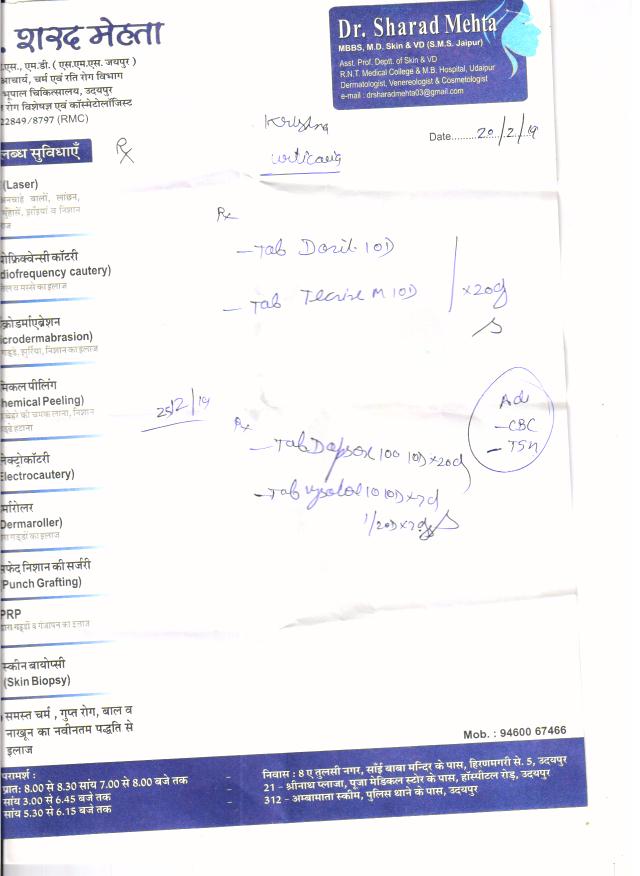 . शरद मेहता
एस., एम.डी. ( एस.एम.एस. जयपुर )
आचार्य, चर्म एवं रति रोग विभाग
भूपाल चिकित्सालय, उदयपुर
रोग विशेषज्ञ एवं कॉस्मेटोलॉजिस्ट
22849/8797 (RMC)
Dr. Sharad Mehta
MBBS, M.D. Skin & VD (S.M.S. Jaipur)
Asst. Prof. Deptt. of Skin & VD
R.N.T. Medical College & M.B. Hospital, Udaipur
Dermatologist, Venereologist & Cosmetologist
e-mail : drsharadmehta03@gmail.com
Date.........20/2/19
Rx
लब्ध सुविधाएँ
(Laser)
अनचाहे बालों, लांछन,
मुंहासें, झाँइयां व निशान
Rx
- Tab 10D
- Tab M 10D
x20d
फ्रिक्वेन्सी कॉटरी
diofrequency cautery)
क्रोडर्माएब्रेशन
icrodermabrasion)
गड्डे, झुर्रियां, निशान का इलाज
मिकल पीलिंग
hemical Peeling)
चेहरे की चमक लाना, निशान
25/2/19
Rx
- Tab 100 10D x20d
- Tab 10 10D x7d
1/2OD x7d
- CBC
नेक्ट्रोकॉटरी
Electrocautery)
र्मारोलर
Dermaroller)
गड्डों का इलाज
फेद निशान की सर्जरी
Punch Grafting)
PRP
द्वारा गड्डों व गंजापन का इलाज
स्कीन बायोप्सी
(Skin Biopsy)
समस्त चर्म , गुप्त रोग, बाल व
नाखून का नवीनतम पद्धति से
इलाज
Mob. : 94600 67466
परामर्श :
प्रात: 8.00 से 8.30 सांय 7.00 से 8.00 बजे तक
सांय 3.00 से 6.45 बजे तक
सांय 5.30 से 6.15 बजे तक
निवास : 8 ए तुलसी नगर, साँई बाबा मन्दिर के पास, हिरणमगरी से. 5, उदयपुर
21 - श्रीनाथ प्लाजा, पूजा मेडिकल स्टोर के पास, हॉस्पीटल रोड़, उदयपुर
312 - अम्बामाता स्कीम, पुलिस थाने के पास, उदयपुर